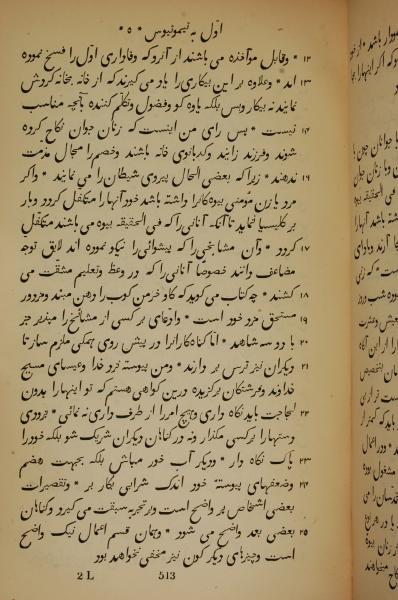 اول به تیموتیوس * ۵ *
۱۲ * وقابل موآخذه می باشند از آنرو که وفاداری اول را فسخ نموده
۱۳ اند * وعلاوه بر این بیکاری را یاد می گیرند که از خانه بخانه گردش
نمایند نه بیکار وبس بلکه یاوه گو وفضول وتکلم کننده بآنچه مناسب
۱۴ نیست * پس رای من اینست که زنان جوان نکاح کرده
شوند وفرزند زایند وکدبانوی خانه باشند وخصم را مجال مذمت
ندهند * زیرا که بعضی الحال پیروی شیطان را می نمایند * واگر
۱۶ مرد یا زن مؤمنی بیوه کانرا داشته باشد خود آنها را متکفل گردد وبار
بر کلیسیا ننماید تا آنکه آنانی را که فی الحقیقه بیوه می باشند متکفل
۱۷ گردد * وآن مشایخی را که پیشوائی را نیکو نموده اند لایق توجه
مضاعف دانند خصوصا آنانی را که در وعظ وتعلیم مشقت می
۱۸ کشند * چه کتاب می گوید که گاو خرمن کوب را دهن مبند ومزدور
۱۹ مستحق مزد خود است * وادعای بر کسی از مشایخ را مپذیر جز
۲۰ با دو سه شاهد * اما گناه کارانرا در پیش روی همگی ملزم ساز تا
۲۱ دیگران نیز ترس بر دارند * ومن پیوسته نزد خدا وعیسای مسیح
خداوند وفرشتگان برگزیده درین گواهی هستم که تو اینها را بدون
۲۲ لجاجت باید نگاه داری وهیچ امر را از طرف داری نه نمائی * بزودی
دستها را بر کسی مگذار ونه در گناهان دیگران شریک شو بلکه خود را
۲۳ پاک نگاه دار * ودیگر آب خور مباش بلکه بجهت هضم
۲۴ وضعفهای پیوسته خود اندک شرابی بکار بر * وتقصیرات
بعضی اشخاص پر واضح است وبر تجربه سبقت می گیرد وگناهان
۲۵ بعضی بعد واضح می شود * وهمان قسم اعمال نیک واضح
است وچیزهای دیگر گون نیز مخفی نخواهد بود
2 L 513